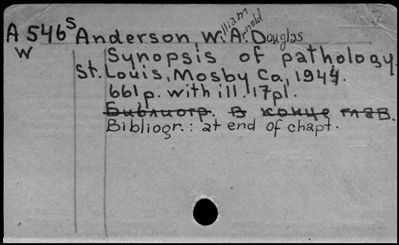 A546s Anderson, William Arnold Douglas
W Synopsis of pathology.
St. Louis, Mosby Co, 1944.
661p. with ill. 17pl.
Библиогр. в конце глав.
Bibliogr.: at end of chapt.